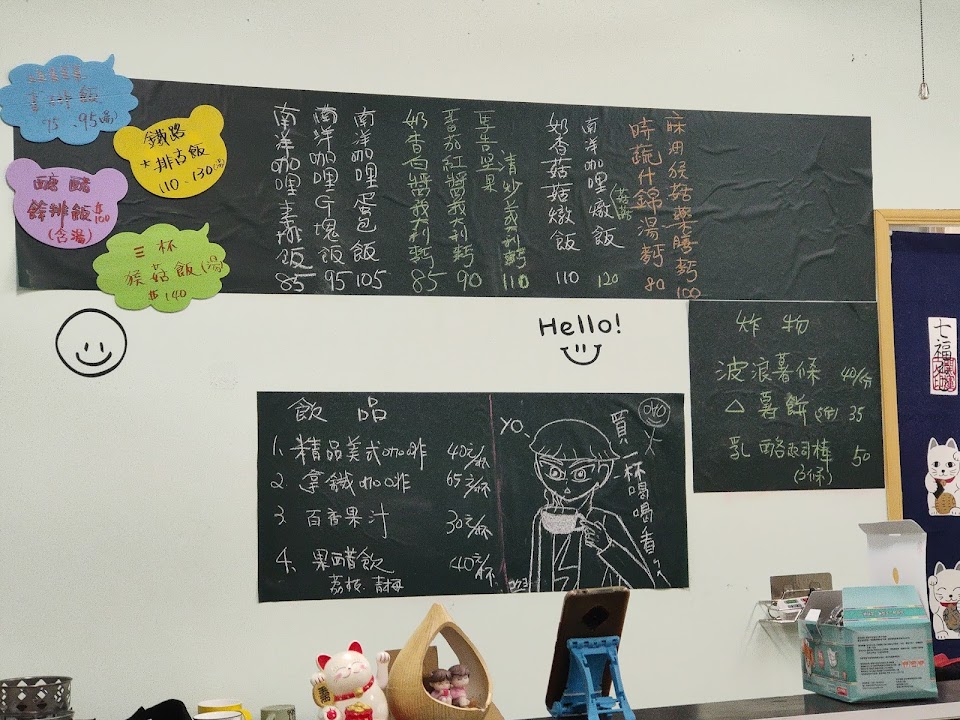 素排飯
95、95(湯)
鐵路
*排古飯
110-130(湯)
糖醋
餘排飯 $100
(含湯)
三杯
猴菇飯(湯)
$140
南洋咖哩素排飯 85
南洋咖哩G塊飯 95
南洋咖哩蛋包飯 105
奶香白醬義大利麵 85
蕃茄紅醬義大利麵 90
馬告堅果
清炒義大利麵 110
奶香菇菇燉飯 110
南洋咖哩燉飯(菇菇) 120
時蔬什錦湯麵 80
麻油猴菇藥膳麵 100
Hello!
炸物
波浪薯條 40/份
△薯餅 35
乳酪 棒 50
(3條)
飲品
1. 精品美式咖啡 40元/杯
2. 拿鐵咖啡 65元/杯
3. 百香果汁 30元/杯
4. 果醋飲 40元/杯
荔枝.青梅
YO~
買一杯喝喝看~
七福